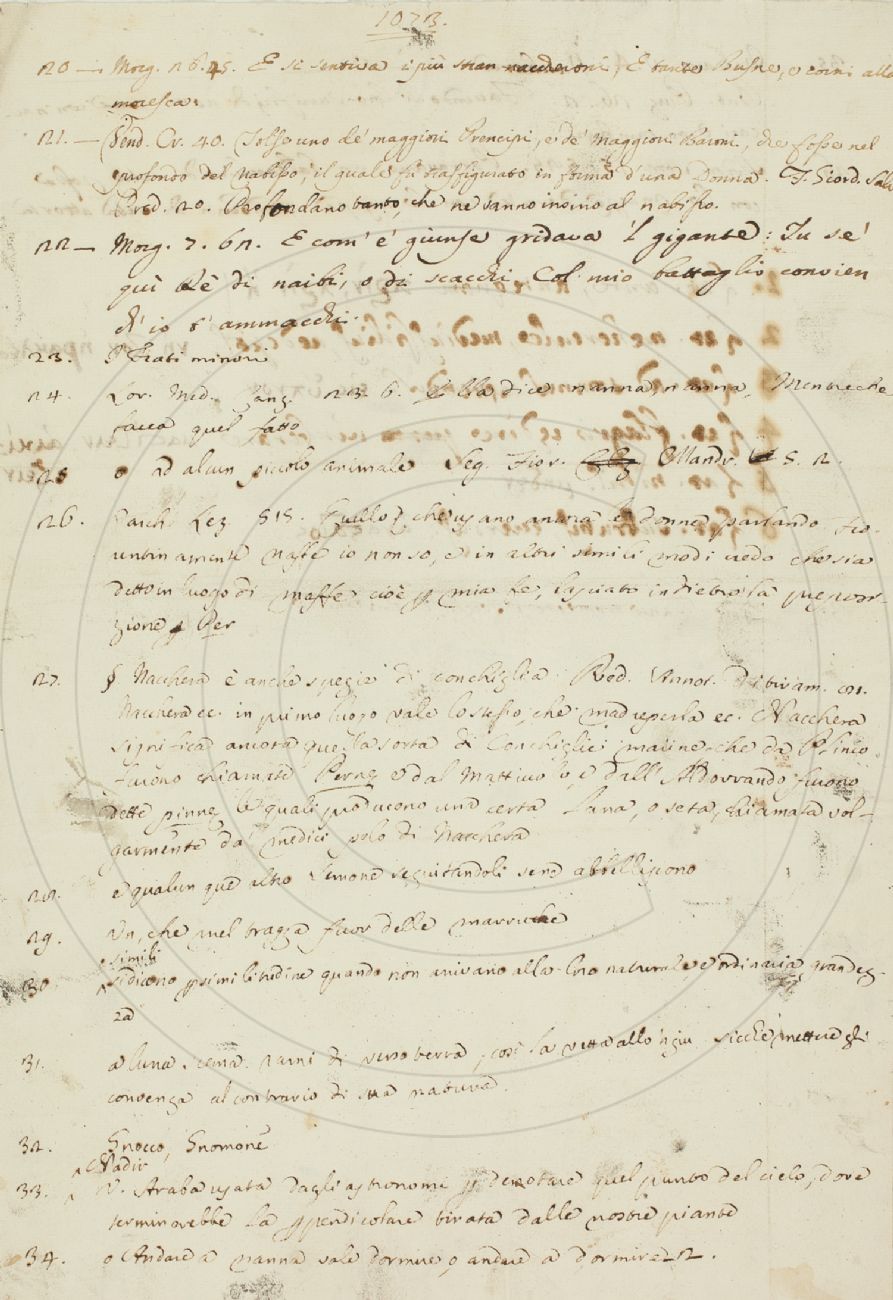 1073.
20 — Morg. 26. 45. E si sentiva i più stran naccheroni, E tante Busne, e corni alla
moresca.
21. — Pend. Cr. 40. Tolse uno de' maggiori Prencipi, e de' maggiori Baroni, che fosse nel
profondo del nabisso, il quale fu trasfigurato in forma d'una Donna. F. Giord. Salv.
Pred. 20. Profondano tanto, che ne vanno insino al nabisso.
22 — Morg. 7. 62. E com' e' giunse gridava 'l gigante: Tu se'
qui Rè di naibi, o di scacchi Col mio battaglio convien
ch' io t' ammacchi.
23. Frati minori
24. Lor. Med. Canz. 23. 6. Ella dice nanna, nanna, Mentreche
faccia quel fatto
25 o ad alcun piccolo animale Seg. Fior. Mandr. 5. 2.
26. Varch. Lez. 515. Quello, che usano ancora le donne parlando Fio-
rentinamente naffe io non so, e in altri simili modi credo che sia
detto in luogo di maffe cioè p mia fe, lasciato indietro la preposi-
zione Per
27. § Nacchera è anche spezie di conchiglia. Red. Annot. Ditiram.
Nacchera ec. in primo luogo vale lo stesso, che madreperla ec. Nacchera
significa ancora quella sorta di Conchiglie marine che da Plinio
furono chiamate Pernę e dal Mattiuolo, e dall' Aldovrando furono
dette pinnę le quali producono una certa lana, o seta, chiamata vol-
garmente da' medici pelo di Nacchera
28. e qualunque altro Simone seguitandoli sene abbelliscono
29. Un, che nel tragga fuor delle marruche
simili
30. si dicono p similitudine quando non arrivano alla loro naturale e ordinaria grandez-
za
31. a luna scema rami di verso terra, così la vetta all' ngiu sicche mettere gli
convenga al contrario di sua natura.
32. Gnocco, Gnomone
Nadir
33. V. Araba usata dagli astronomi p denotare quel punto del cielo, dove
terminerebbe la ppendicolare tirata dalle nostre piante
34. o Andare a nanna vale dormire, o andare a dormire 22.